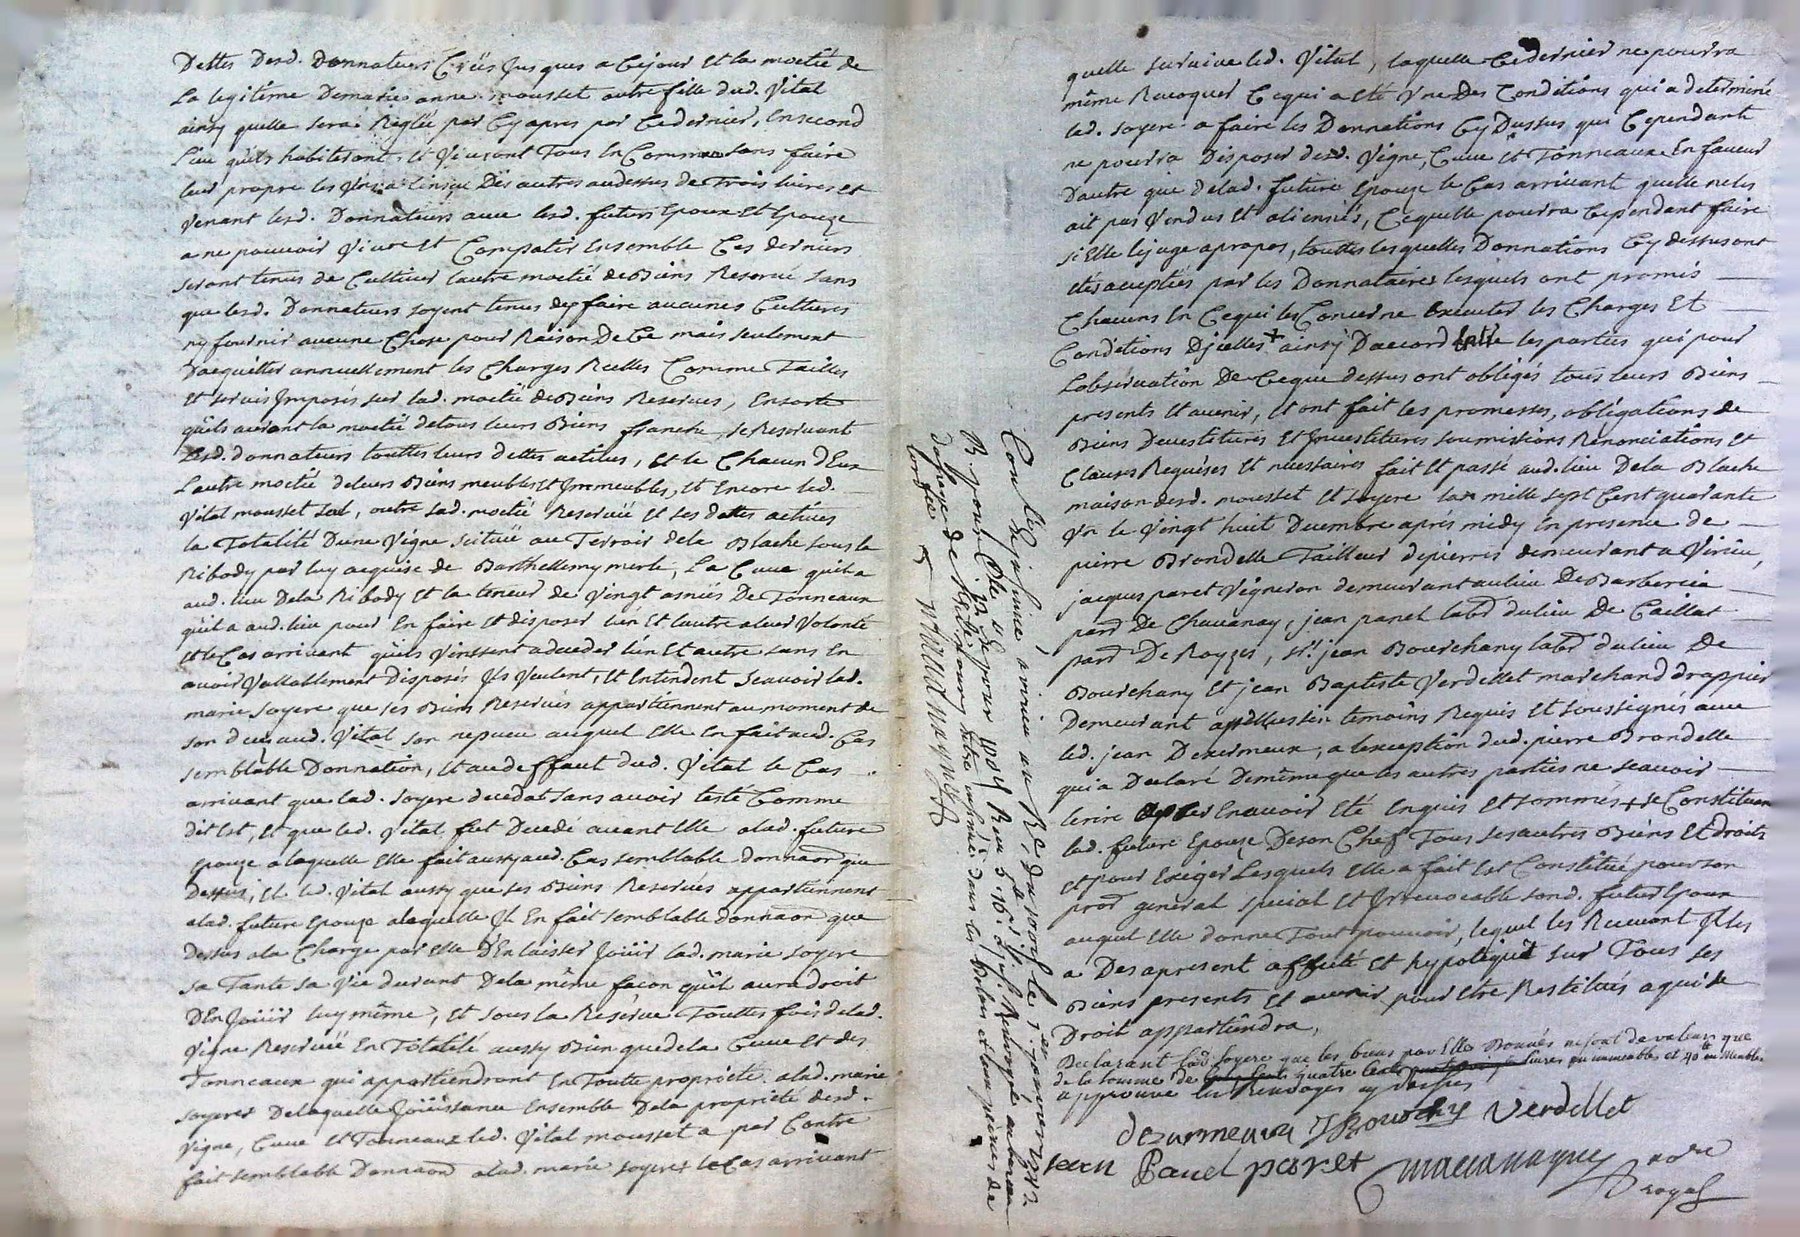 Dettes desd. donnateurs Créés Jusques a Cejour et la moetié de
La legitime Demarie anne mousset autre fille dud. Vital
ainsy quelle sera Reglée par Cy apres par Cedernier, En second
Lieu quils habiteront, et Vivront Tous En Commun sans faire
leur propre les Uns a Linsçu Des autres audessus de Trois livres et
Venant lesd. Donnateurs avec lesd. futurs Epoux Et Epouze
a ne pouvoir Vivre et Compatir Ensemble Ces derniers
seront tenus de Cultiver lautre moetié de Biens Reservé sans
que lesd. Donnateurs soyent tenus dy faire aucunes Cultures
ny fournir aucune Chose pour Raison De Ce mais seulement
Dacquitter annuellement les Charges Reelles Comme Tailles
et servis Imposés sur lad. moetié de Biens Reservés, Ensorte
quils auront la moetié detous leurs Biens franche, se Reservant
Lesd. donnateurs touttes leurs dettes actives, et le Chacun d'Eux
Lautre moetié deleurs Biens meubles et Immeubles, et Encore led.
Vital mousset seul, outre sad. moetié Reservée et ses dettes actives
la Totalité Dune Vigne scituée au Terroir dela Blache sous la
Ribody par luy acquise de Barthellemy merle, La Cuve quil a
aud. lieu Dela Ribody et la teneur de Vingt asnées De Tonneaux
quil a aud. lieu pour En faire et disposer lun Et lautre aleur Volonté
et le Cas arrivant quils Vinssent adceder lun Et autre sans En
avoir Vallablement Disposés Ils Veulent, et Entendent Scavoir lad.
marie soyere que ses Biens Reservés appartiennent au moment de
son deces aud. Vital son nepveu auquel Elle En fait aud. Cas
semblable Donnation, et audeffaut dud. Vital le Cas
arrivant que lad. soyere decedat sans avoir testé Comme
dit Est, et que led. Vital fut Decedé avant Elle alad. future
Epouze a laquelle Elle fait aussy aud. Cas semblable donnaon que
dessus, et led. Vital aussy que ses Biens Reservés appartiennent
alad. future Epouze alaquelle Il En fait semblable donnaon que
Dessus ala Charge par Elle D'En laisser Joüir lad. marie soyere
sa Tante sa Vie durant Dela même façon quil aura droit
D'En Joüir luy même, et sous la Réserve Touttes fois delad.
Vigne Reservée En Totalité aussy Bien quedela Cuve Et des
Tonneaux qui appartiendront En Toutte proprieté alad. marie
soyere Delaquelle Joüissance Ensemble Dela proprieté desd.
Vigne, Cuve et Tonneaux led. Vital mousset a par Contre
fait semblable Donnaon alad. marie soyere le Cas arrivant
quelle survive led. Vital, laquelle Cedernier ne pourra
même Revoquer Cequi a Eté Une Des Conditions qui a determiné
lad. soyere a faire les Donnations Cy Dessus que Cependant
ne pourra Disposer desd. Vigne, Cuve et Tonneaux En faveur
Dautre que delad. future Epouze le Cas arrivant quelle ne les
ait pas Vendus et alienés, Cequelle pourra Cependant faire
si Elle le juge apropos, touttes lesquelles Donnations Cy dessus ont
étés acceptées par les Donnataires lesquels ont promis
Chacuns En Cequi les Concerne Executer les Charges Et
Conditions D'icelles + ainsy D'accord Entre les parties qui pour
Lobservation De Ceque dessus ont obligés tous leurs Biens
presents et avenir, et ont fait les promesses, obligations de
Biens Devestitures Et Investitures soumissions Renonciations Et
Clauses Requises Et necessaires fait Et passé aud. lieu Dela Blache
maison desd. mousset et soyere lan mille sept Cent quarante
Un le Vingt huit Decembre aprés midy En presence de
pierre Brondelle Tailleur depierres demeurant a Virieu,
jacques paret Vigneron demeurant au lieu De Barbercia
parr De Chavanay, jean panel labr dulieu De Caillat
parr De Royzes, Sr. jean Bourchany labr dulieu De
Bourchany Et jean Baptiste Verdellet marchand drappier
Demeurant apellussin temoins Requis Et soussignés avec
led. jean Dezermeux, a lexception dud. pierre Brondelle
qui a Declaré Demême que les autres parties ne scavoir
Ecrire Enavoir Eté Enquis Et sommés + se Constituant
lad. future Epouze Deson Chef Tous ses autres Biens Et droits
Et pour Exiger Lesquels Elle a fait Est Constitué pour son
procr general special et Irrevocable sond. futur Epoux
auquel Elle donne Tout pouvoir, lequel les Recevant Il les
a Des apresent affecté Et hypotequé sur Tous ses
Biens presents Et avenir pour Etre Restitués aqui de
Droit appartiendra,
Declarant lad. soyere que les biens par Elle Donnés ne sont de valeur que
de la somme de quatre Cent livres en immeubles et 40 en Meubles
approuvé les Renvoyes cy dessus
dezarmeaux JBourchy Verdellet
jean Panel paret macanayne nore
royal
Controllé et Insinué a virieu au Re du prost le 7 janvier 1742
Reçu
de l'autre
Certifié